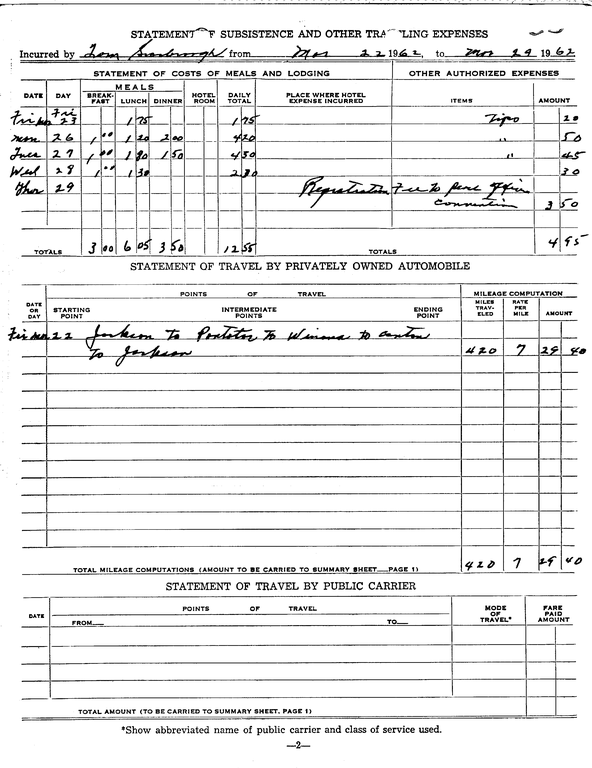 STATEMENT OF SUBSISTENCE AND OTHER TRA LING EXPENSES
Incurred by Tom Scarbrough from Mar 22 1962, to Mar 29 1962
STATEMENT OF COSTS OF MEALS AND LODGING OTHER AUTHORIZED EXPENSES
MEALS
DATE DAY BREAK-FAST LUNCH DINNER HOTEL ROOM DAILY TOTAL PLACE WHERE HOTEL EXPENSE INCURRED ITEMS AMOUNT
Fri 23 1 75 1 75 Tips 20
Mon. 26 1 00 1 20 2 00 4 20 " 50
Tues 27 1 00 1 80 1 50 4 30 " 45
Wed 28 1 00 1 30 2 30 30
Thur 29 Registration Fee to peace officer
Convention 3 50
TOTALS 3 00 6 05 3 50 12 55 TOTALS 4 95
STATEMENT OF TRAVEL BY PRIVATELY OWNED AUTOMOBILE
POINTS OF TRAVEL MILEAGE COMPUTATION
DATE OR DAY STARTING POINT INTERMEDIATE POINTS ENDING POINT MILES TRAV-ELED RATE PER MILE AMOUNT
22 Jackson to Pontotoc to Winona to Canton
to Jackson 420 7 29 40
TOTAL MILEAGE COMPUTATIONS (AMOUNT TO BE CARRIED TO SUMMARY SHEET PAGE 1) 420 7 29 40
STATEMENT OF TRAVEL BY PUBLIC CARRIER
DATE POINTS OF TRAVEL MODE OF TRAVEL* FARE PAID AMOUNT
FROM TO
TOTAL AMOUNT (TO BE CARRIED TO SUMMARY SHEET, PAGE 1)
*Show abbreviated name of public carrier and class of service used.
—2—